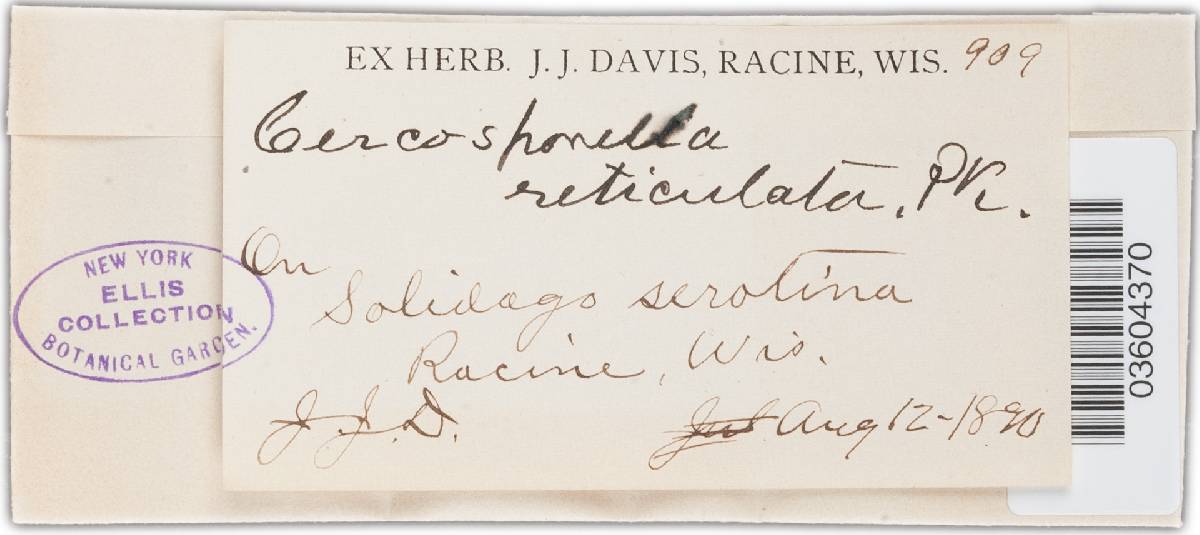 EX HERB. J. J. DAVIS, RACINE, WIS. 909
Cercosporella
reticulata, Pk.
On
Solidago serotina
Racine, Wis.
J. J. D. Aug 12-1890
NEW YORK
ELLIS
COLLECTION
BOTANICAL GARDEN.
03604370